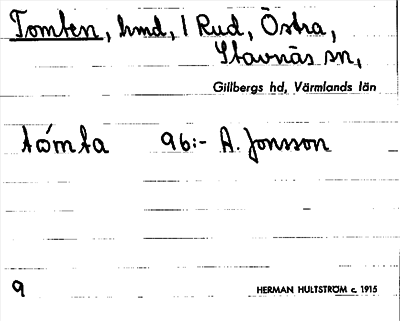 Tomten, hmd, 1 Rud, Östra,
Stavnäs sn,
Gillbergs hd, Värmlands län
tómta 96:- A. Jonsson
9
HERMAN HULTSTRÖM c. 1915